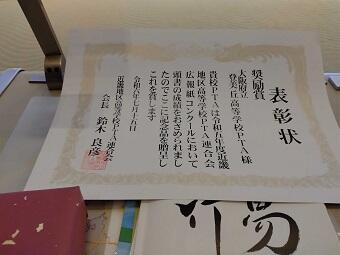 表彰状
奨励賞
大阪府立
登美丘高等学校PTA様
貴校PTAは令和五年度近畿
地区高等学校PTA連合会
広報紙コンクールにおいて
頭書の成績をおさめられまし
たのでここに記念品を贈呈し
これを賞します
令和六年七月十五日
近畿地区高等学校PTA連合会
会長 鈴木良彦